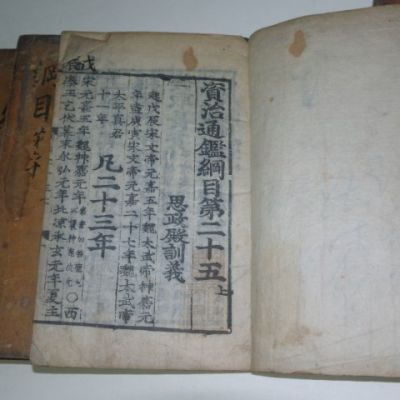 資治通鑑綱目第二十五上
思政殿訓義
起戊辰宋文帝元嘉五年魏太武帝神䴥元
年盡庚寅宋文帝元嘉二十七年魏太武帝
太平真君
十一年
凡二十三年
戊辰
宋元嘉五年魏神䴥元年
○西
秦王乞伏暮末永弘元年北涼承玄元年夏主
目